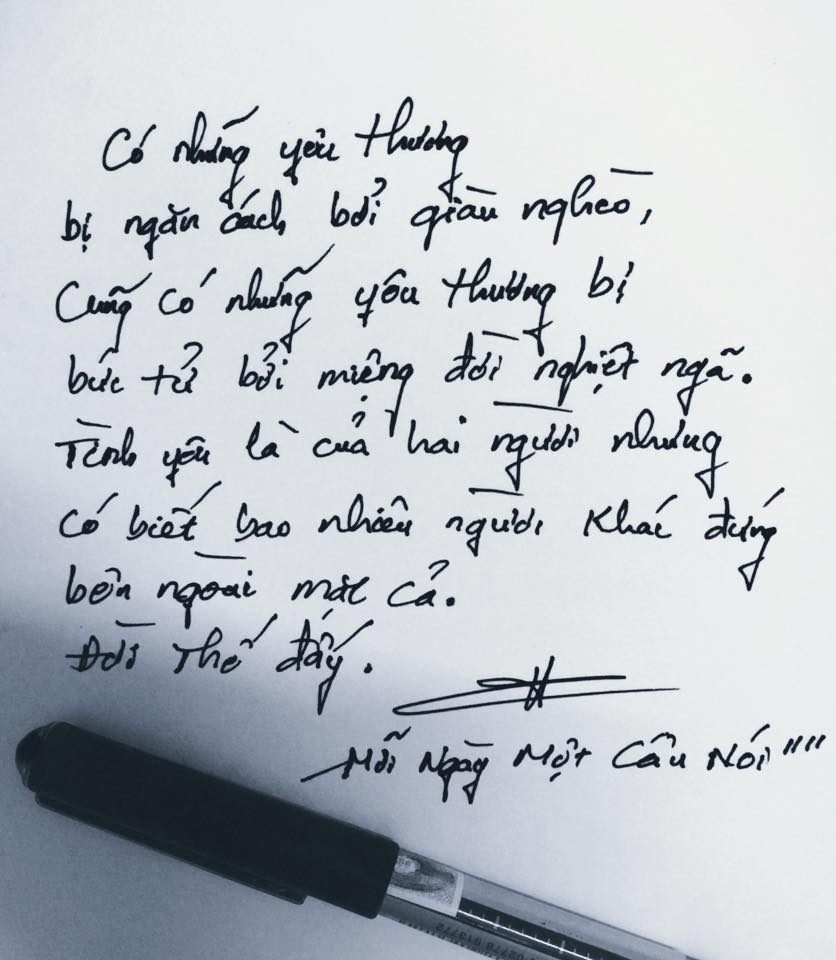 Có những yêu thương
bị ngăn cách bởi giàu nghèo,
Cũng có những yêu thương bị
bức tử bởi miệng đời nghiệt ngã.
Tình yêu là của hai người nhưng
có biết bao nhiêu người khác đứng
bên ngoài mặc cả.
Đời thế đấy.
Mỗi Ngày Một Câu Nói""